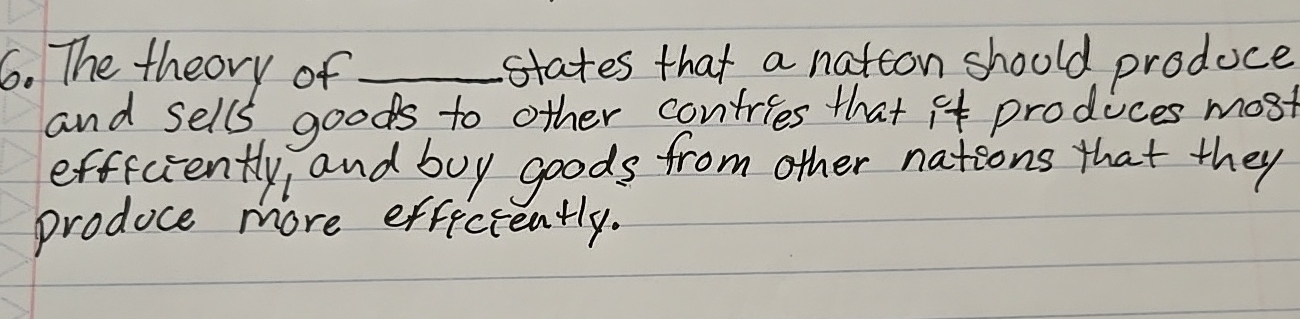 6. The theory of ______ states that a nation should produce
and sells goods to other contries that it produces most
efficiently, and buy goods from other nations that they
produce more efficiently.